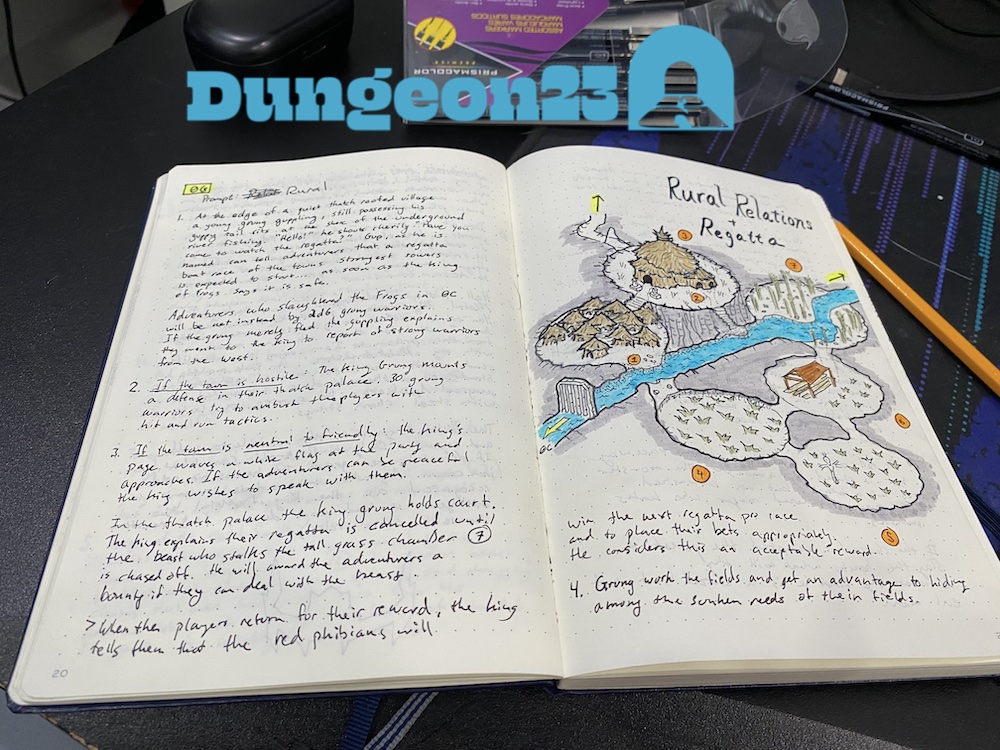 Dungeon23
ASSORTED MARKERS
MARCADORES SURTIDOS
PRISMACOLOR
PREMIER
PRISMACOLOR
06
Prompt: Rural
1. At the edge of a quiet thatch roofed village
a young grung guppling, still possessing his
guppy tail sits at the shore of the underground
river fishing. "Hello!" he shouts cherily "Have you
come to watch the regatta?" Gup, as he is
named can tell adventurers that a regatta
boat race of the towns strongest rowers
is expected to start... as soon as the king
of frogs says it is safe.
Adventurers who slaughtered the Frogs in
will be met instead by 2d6 grung warriors.
If the grung merely fled the guppling explains
they went to the king to report of strong warriors
from the west.
2. If the town is hostile: The King Grung mounts
a defense in their thatch palace. 30 grung
warriors try to ambush the players with
hit and run tactics.
3. If the town is neutral to friendly: the king's
page waves a white flag at the party and
approaches. If the adventurers can be peaceful
the king wishes to speak with them.
In the thatch palace the king grung holds court.
The king explains their regatta is cancelled until
the beast who stalks the tall grass chamber 7
is chased off. He will award the adventurers a
bounty if they can deal with the beast
> When then players return for their reward, the king
tells them that the red phibians will
20
Rural Relations
+
Regatta
3
7
2
1
6
4
5
win the next regatta pro race
and to place their bets appropriately.
He considers this an acceptable reward.
4. Grung work the fields and get an advantage to hiding
among the sunken reeds of their fields.